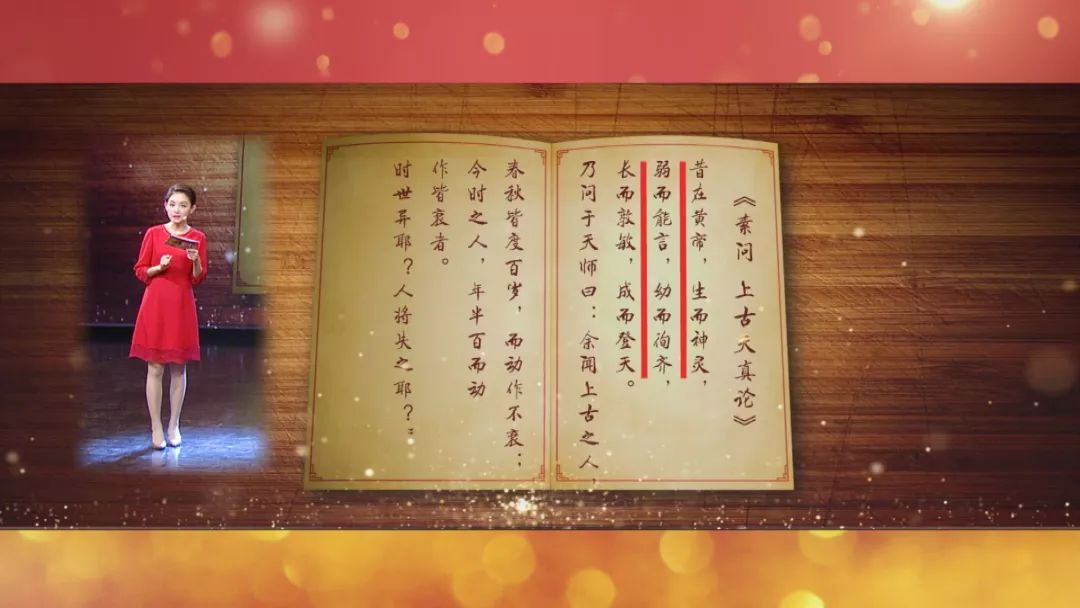 《素问 上古天真论》
昔在黄帝，生而神灵，
弱而能言，幼而徇齐，
长而敦敏，成而登天。
乃问于天师曰：余闻上古之人，
春秋皆度百岁，而动作不衰；
今时之人，年半百而动
作皆衰者。
时世异耶？人将失之耶？”